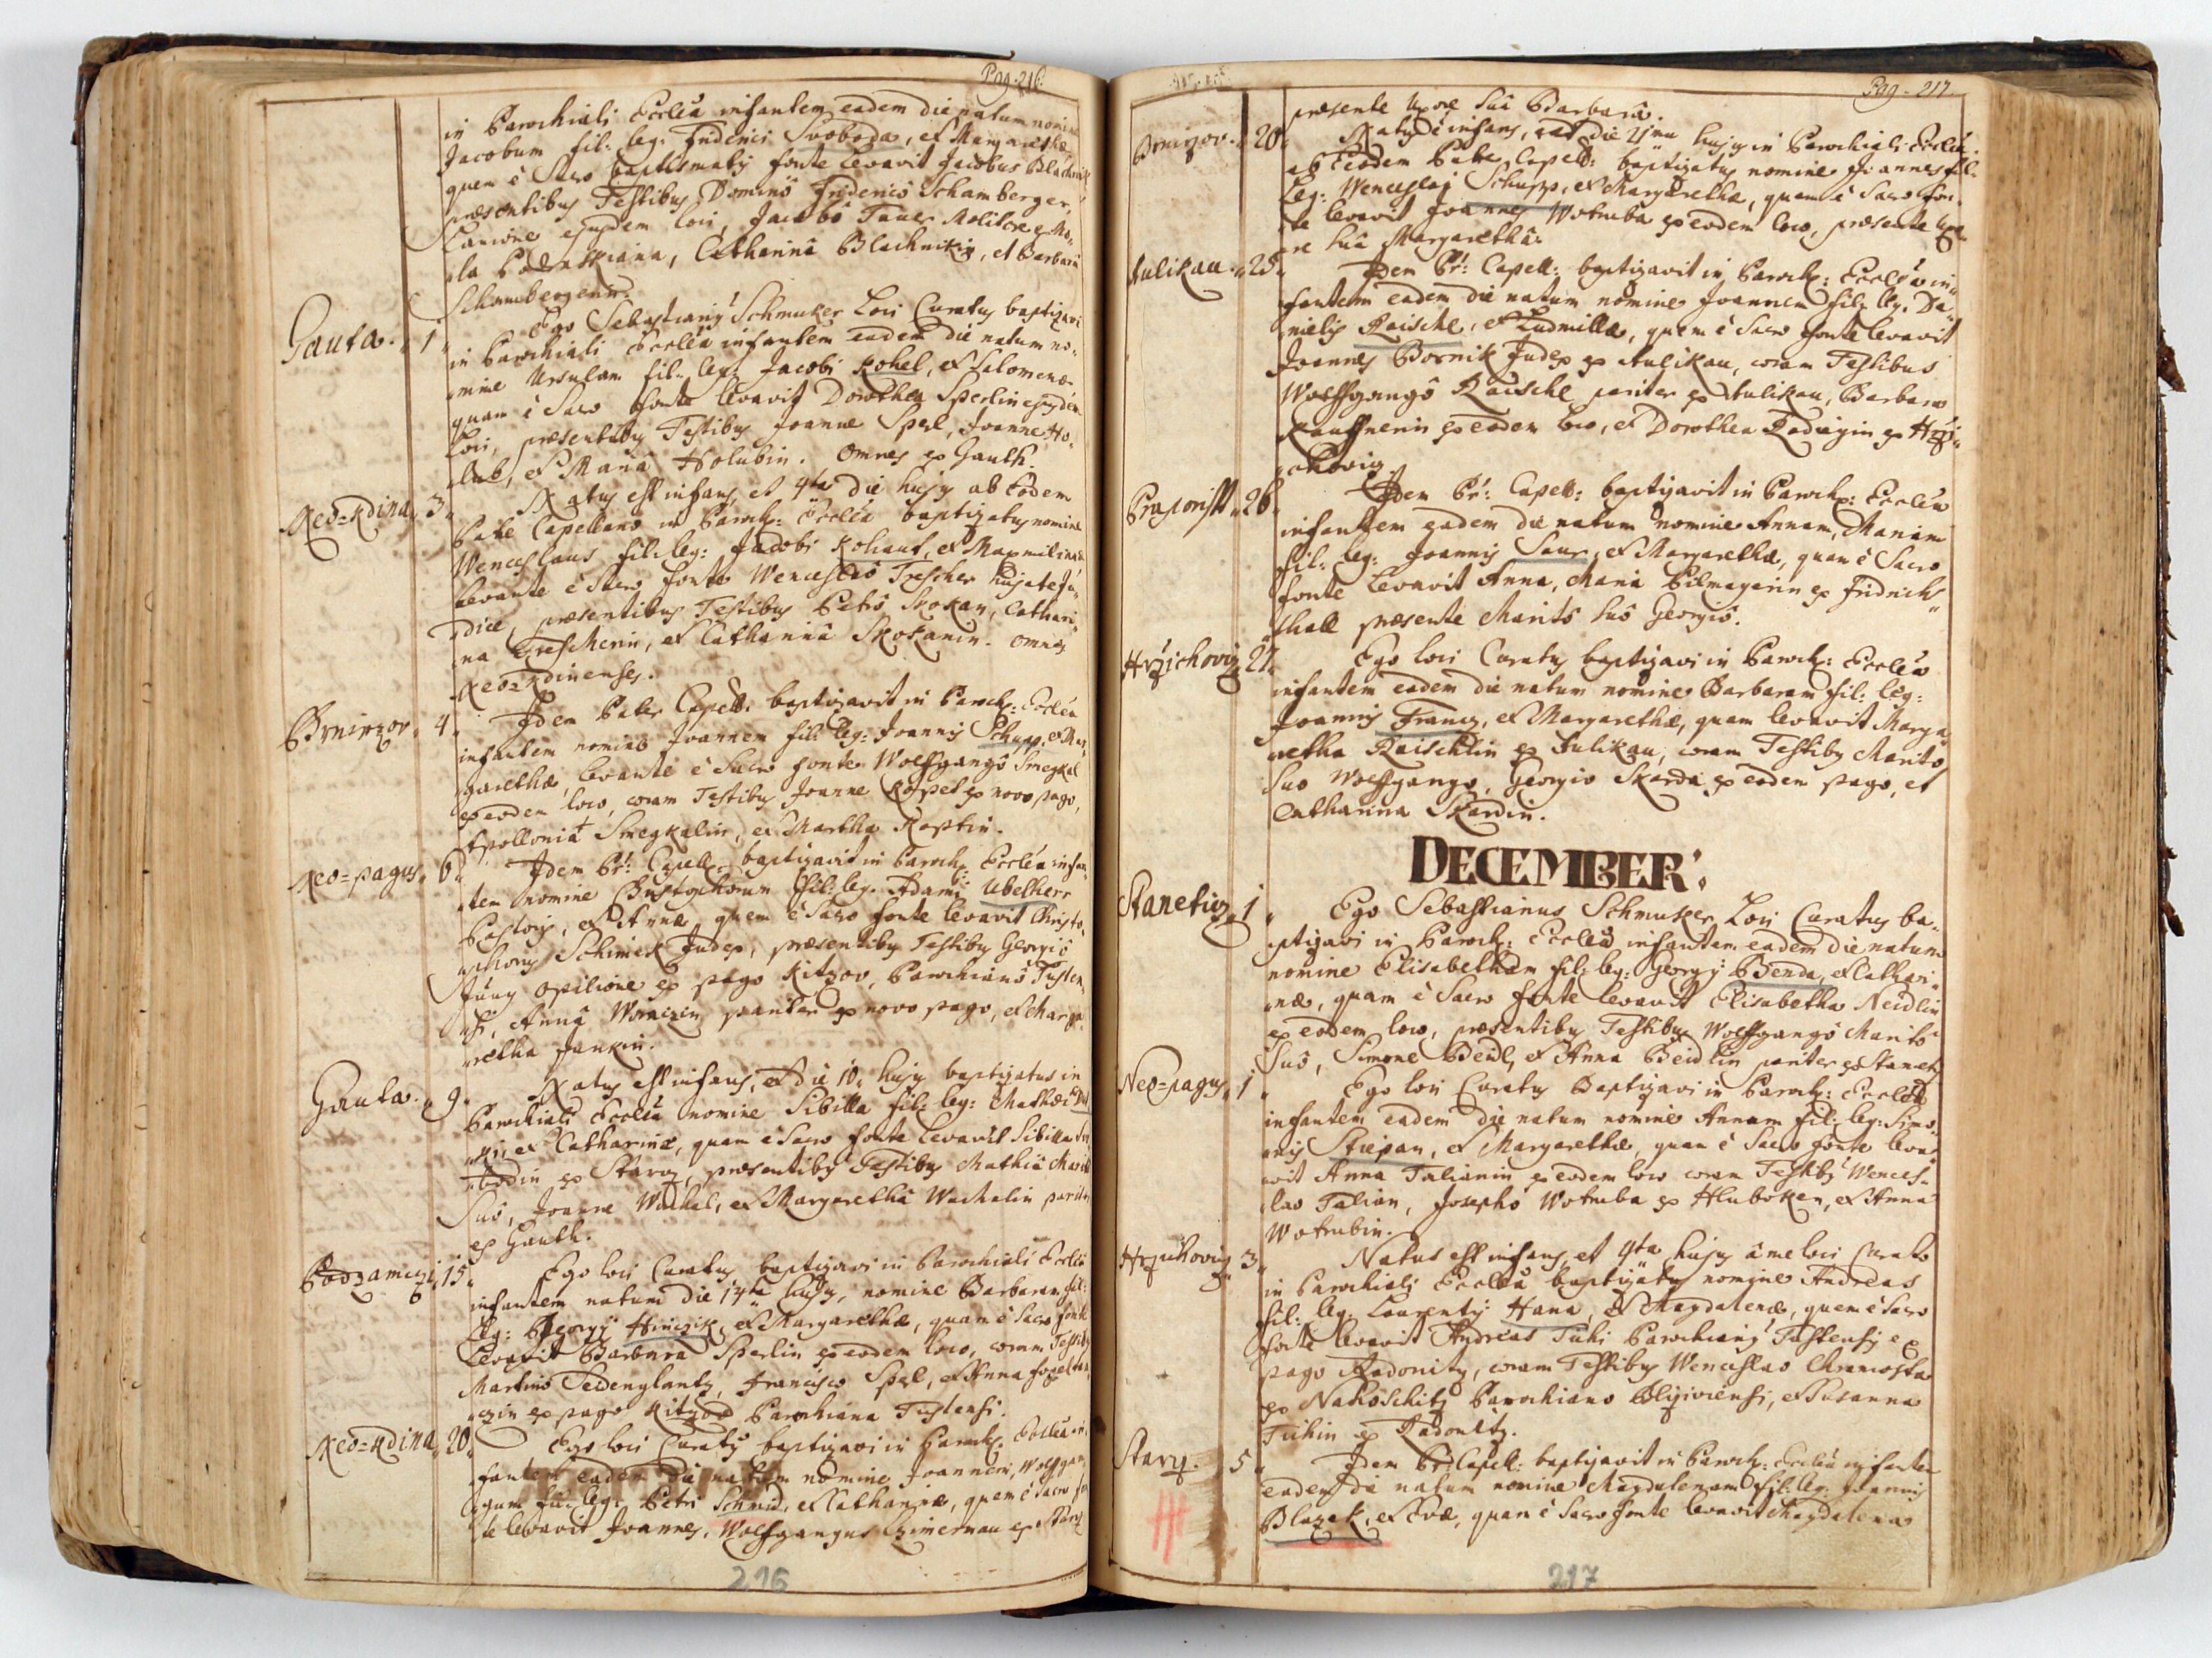 Pag. 216.
in Parochiali Eccleâ infantem eadem die natum nomine
Jacobum fil: leg: Friderici Svoboda, et Margarethæ
quem è Sacro baptismatis fonte levavit Jacobus Blachnik
præsentibus Testibus Dominô Fridericô Schamberger,
Lanione ejusdem loci, Jacobô Tauer Molitore ex Mo,,
,,la Catharinâ Blachnikin, et Barbarâ
Schambergerin.
Gauta. 1 Ego Sebastianus Schmuker Loci Curatus baptizavi
in Parochiali Ecclêa infantem eadem die natum no,,
,,mine Ursulam fil: leg: Jacobi Kohel, et Salomenæ
quam è Sacro fonte levavit Dorothea Sperlin ejusdem
Loci, præsentibus Testibus Joanne Sperl, Joanne Ho,,
,,lub, et Mariâ Holubin. Omnes ex Gauth.
Neo=Kdina 3 Natus est infans, et 4ta die hujus ab Eodem
Patre Capellano in Paroch: Ecclêa baptizatus nomine
Wenceslaus fil: leg: Jacobi Kohaut, et Maximilianæ
levante è Sacro fonte Wenceslaô Trescher hujate Ju,,
,,dice, præsentibus Testibus Petrô Skokan, Cathari,,
,,na Trescherin, et Catharinâ Skokanin. Omnes
Neo=Kdinenses.
Brnirzov 4 Idem Pater Capell: baptizavit in Paroch: Ecclêa
infantem nomine Joannem fil: leg: Joannis Schupp, et Mar,,
,,garethæ, levante è Sacro fonte Wolfgangô Smegkal
ex eodem loco, coram Testibus Joanne Kopet ex novo pago,
Apolloniâ Smegkalin, et Martha Koptin.
Neo=pagus 6 Idem Pr: Capell: baptizavit in Paroch: Ecclêa infan,,
,,tem nomine Christophorum fil: leg: Adami Ubelherr
Pastoris, et Annæ, quem è Sacro fonte levavit Christo,,
,,phorus Schimek Judex, præsentibus Testibus Georgiô
Jung opilione ex pago Kitzov, Parochianô Tusten,,
,,si, Annâ pariter ex novo pago, et Marga,,
,,retha Jankin.
Gauta. 9 Natus est infans, et die 10. hujus baptizatus in
Parochiali Ecclêa nomine Sibilla fil: leg: Mathæi
et Catharinæ, quam è Sacro fonte levavit Sibilla
ex Starz, præsentibus Testibus Mathiâ Marito
Suô, Joanne Wachal, et Margarethâ Wachalin pariter
ex Gauth.
Podzamczi 15 Ego loci Curatus baptizavi in Parochiali Ecclêa
infantem natum die 14ta hujus, nomine Barbaram fil:
leg: Georgij Hinczik, et Margarethæ, quam è Sacro fonte
levavit Barbara Sperlin ex eodem loco, coram Testibus
Martinô Seidenglantz, Francisco Sperl, et Anna
ex pago Kitzov Parochiana Tustensi.
Neo=Kdina 20 Ego loci Curatus baptizavi in Paroch: Ecclêa in,,
fantem eadem die natum nomine Joannem, Wolfgan,,
,,gum fil: leg: Petri Schmid, et Catharinæ, quem è Sacro fon
te levavit Joannes, Wolfgangus Czimerman ex Starz
216
Pag. 217.
præsente Uxore Suâ Barbarâ.
Brnirzov 20 Natus è infans, et die 21ma hujus in Parochiali Ecclêa
ab Eodem Patre Capell: baptizatus nomine Joannes fil:
leg: Wenceslaj Schupp, et Margarethæ, quem è Sacro fon,,
,,te levavit Joannes Wotruba ex eodem loco, præsente Uxo
re Suâ Margarethâ.
Aulikau 25 Idem Pr: Capell: baptizavit in Paroch: Ecclêa in,,
fantem eadem die natum nomine Joannem fil: leg: Da,,
,,nielis Raischl, et Ludmillæ, quem è Sacro fonte levavit
Joannes Bornik Judex ex Aulikau, coram Testibus
Wolfgangô Raischl pariter ex Aulikau, Barbara
Kauffnerin ex eodem loco, et Dorothea Radiczin ex Hrzi,,
,,chowiz.
Praporischt 26 Idem Pr: Capell: baptizavit in Paroch: Ecclêa
infantem eadem die natum nomine Annam, Mariam
fil: leg: Joannis Saur, et Margarethæ, quam è Sacro
fonte levavit Anna, Maria Pilmayerin ex Fridrichs,,
thall præsente Maritô Suô Georgiô.
Hrzichoviz 27 Ego loci Curatus baptizavi in Paroch: Ecclêa
infantem eadem die natum nomine Barbaram fil: leg:
Joannis Francz, et Margarethæ, quam levavit Marga
retha Raischlin ex Aulikau, coram Testibus Maritô
Suo Wolfgango, Georgio Skarda ex eodem pago, et
Catharina Skardin.
DECEMBER:
Stanetiz 1 Ego Sebastianus Schmuker Loci Curatus ba,,
ptizavi in Paroch: Ecclêa infantem eadem die natum
nomine Elisabetham fil: leg: Georgij Benda, et Cathari,,
,,næ, quam è Sacro fonte levavit Elisabetha Neidlin
ex eodem loco, præsentibus Testibus Wolfgangô Maritô
Suô, Simone Beidl, et Anna Beidlin pariter ex Stanetz
Neo=pagus 1 Ego loci Curatus Baptizavi in Paroch: Ecclêa
infantem eadem die natum nomine Annam fil: leg: Simo,,
,,nis Stiepan, et Margarethæ, quam è Sacro fonte leva,,
,,vit Anna Talianin ex eodem loco coram Testibus Wences,,
lao Talian, Josepho Wotruba ex Hluboken, et Anna
Wotrubin.
Hrzichoviz 3 Natus est infans, et 4ta hujus â me loci Curato
in Parochiali Ecclêa baptizatus nomine Andreas
fil: leg: Laurentij Hana, et Magdalenæ, quem è Sacro
fonte levavit Andreas Tichi Parochianus Tustensis ex
pago Radonitz, coram Testibus Wenceslao Chramosta
ex Nahoschitz Parochiano Blizivensi, et Susanna
Tichin ex Radonitz.
Starz. 5 Idem Pr: Capell: baptizavit in Paroch: Ecclêa infantem
eadem die natum nomine Magdalenam fil: leg: Joannis
Blazek, et Evæ, quam è Sacro fonte levavit Magdalena
217